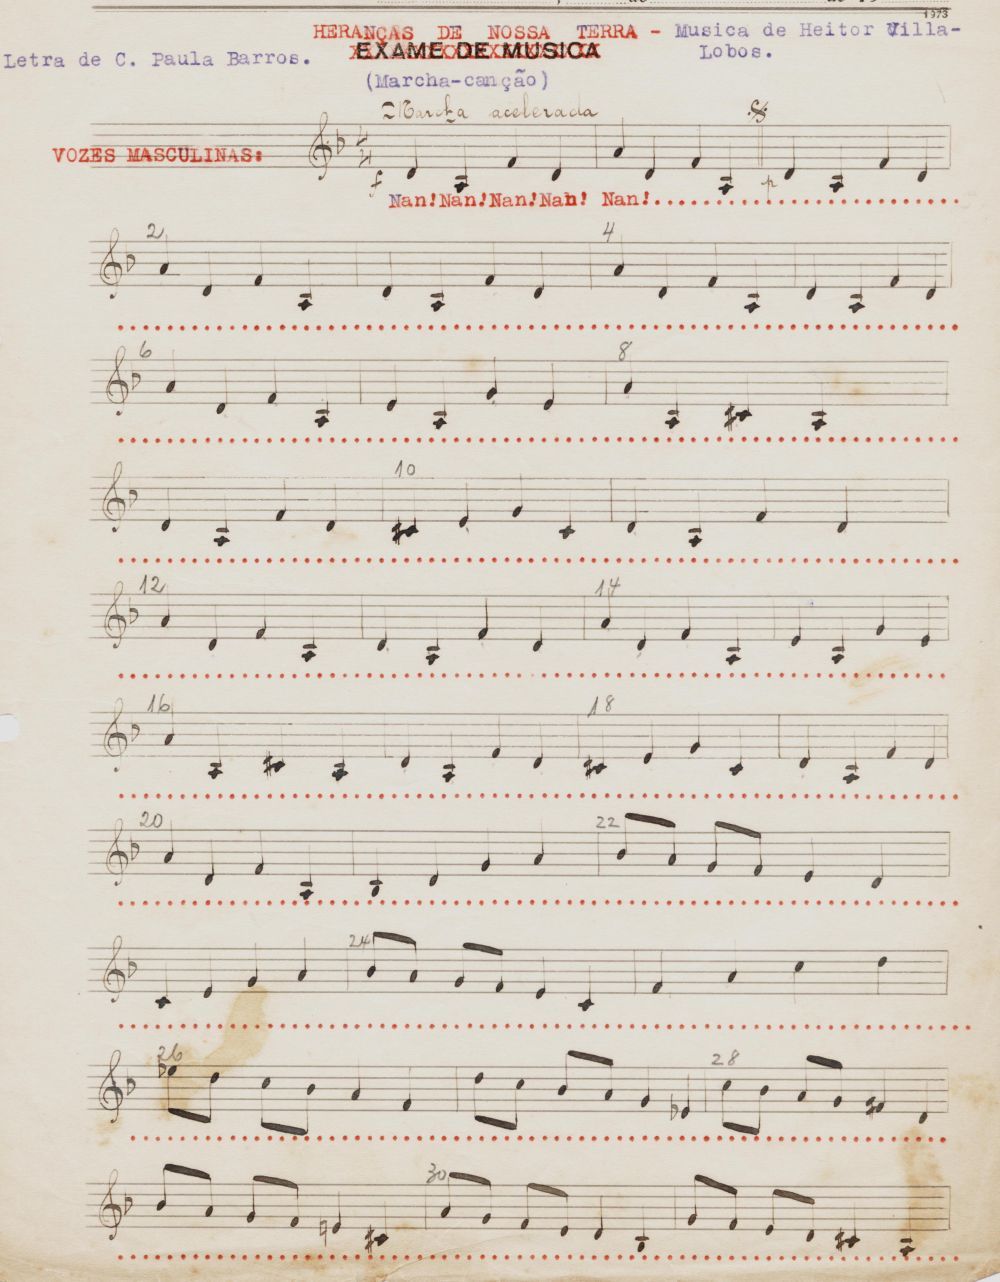 1973
HERANÇAS DE NOSSA TERRA - Musica de Heitor Villa-
Letra de C. Paula Barros. EXAME DE MUSICA Lobos.
(Marcha-canção)
Marcha acelerada
VOZES MASCULINAS:
f p
Nan!Nan!Nan!Nan! Nan!
2 4
6 8
10
12 14
16 18
20 22
24
26 28
30